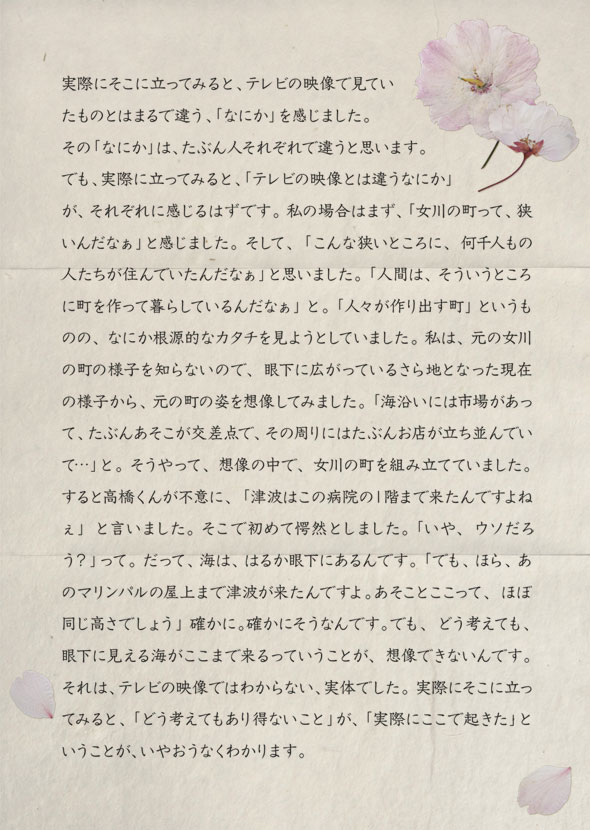 実際にそこに立ってみると、テレビの映像で見てい
たものとはまるで違う、「なにか」を感じました。
その「なにか」は、たぶん人それぞれで違うと思います。
でも、実際に立ってみると、「テレビの映像とは違うなにか」
が、それぞれに感じるはずです。私の場合はまず、「女川の町って、狭
いんだなぁ」と感じました。そして、「こんな狭いところに、何千人もの
人たちが住んでいたんだなぁ」と思いました。「人間は、そういうところ
に町を作って暮らしているんだなぁ」と。「人々が作り出す町」というも
のの、なにか根源的なカタチを見ようとしていました。私は、元の女川
の町の様子を知らないので、眼下に広がっているさら地となった現在
の様子から、元の町の姿を想像してみました。「海沿いには市場があっ
て、たぶんあそこが交差点で、その周りにはたぶんお店が立ち並んでい
て…」と。そうやって、想像の中で、女川の町を組み立てていました。
すると高橋くんが不意に、「津波はこの病院の1階まで来たんですよね
ぇ」と言いました。そこで初めて愕然としました。「いや、ウソだろ
う?」って。だって、海は、はるか眼下にあるんです。「でも、ほら、あ
のマリンパルの屋上まで津波が来たんですよ。あそことここって、ほぼ
同じ高さでしょう」確かに。確かにそうなんです。でも、どう考えても、
眼下に見える海がここまで来るっていうことが、想像できないんです。
それは、テレビの映像ではわからない、実体でした。実際にそこに立っ
てみると、「どう考えてもあり得ないこと」が、「実際にここで起きた」と
いうことが、いやおうなくわかります。